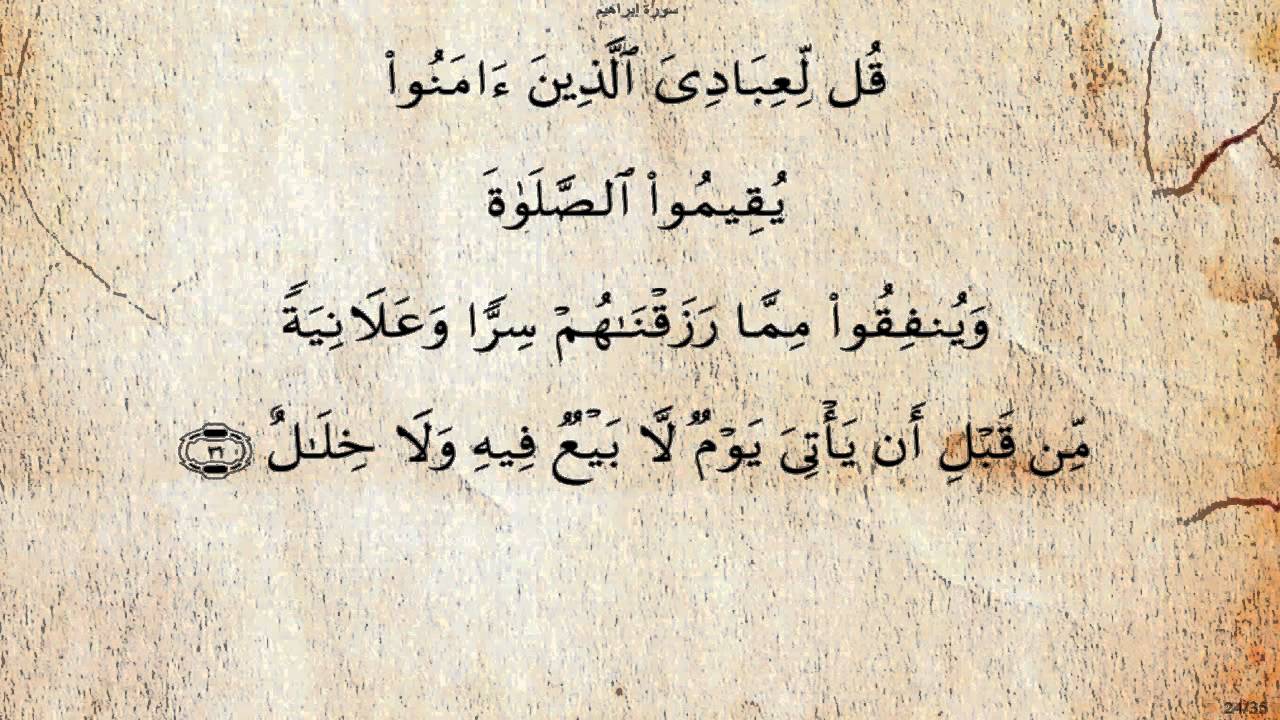 سورة إبراهيم
قُل لِّعِبَادِىَ ٱلَّذِينَ ءَامَنُوا۟
يُقِيمُوا۟ ٱلصَّلَوٰةَ
وَيُنفِقُوا۟ مِمَّا رَزَقْنَـٰهُمْ سِرًّا وَعَلَانِيَةً
مِّن قَبْلِ أَن يَأْتِىَ يَوْمٌ لَّا بَيْعٌ فِيهِ وَلَا خِلَـٰلٌ ٣١
24/35